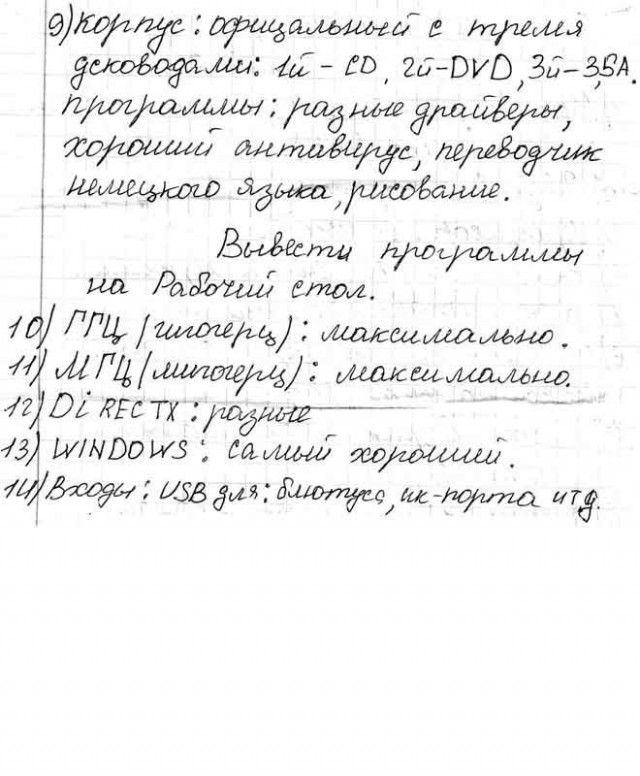 9) корпус: офицальный с тремя
дсководами: 1й - CD, 2й-DVD, 3й-3,5А.
программы: разные драйверы,
хороший антивирус, переводчик
немецкого языка, рисование.
Вывести программы
на Рабочий стол.
10) ГГЦ (гигогерц): максимально.
11) МГЦ (мигогерц): максимально.
12) DiRECTX: разные
13) WINDOWS: самый хороший.
14) Входы: USB для: блютуса, ик-порта итд.